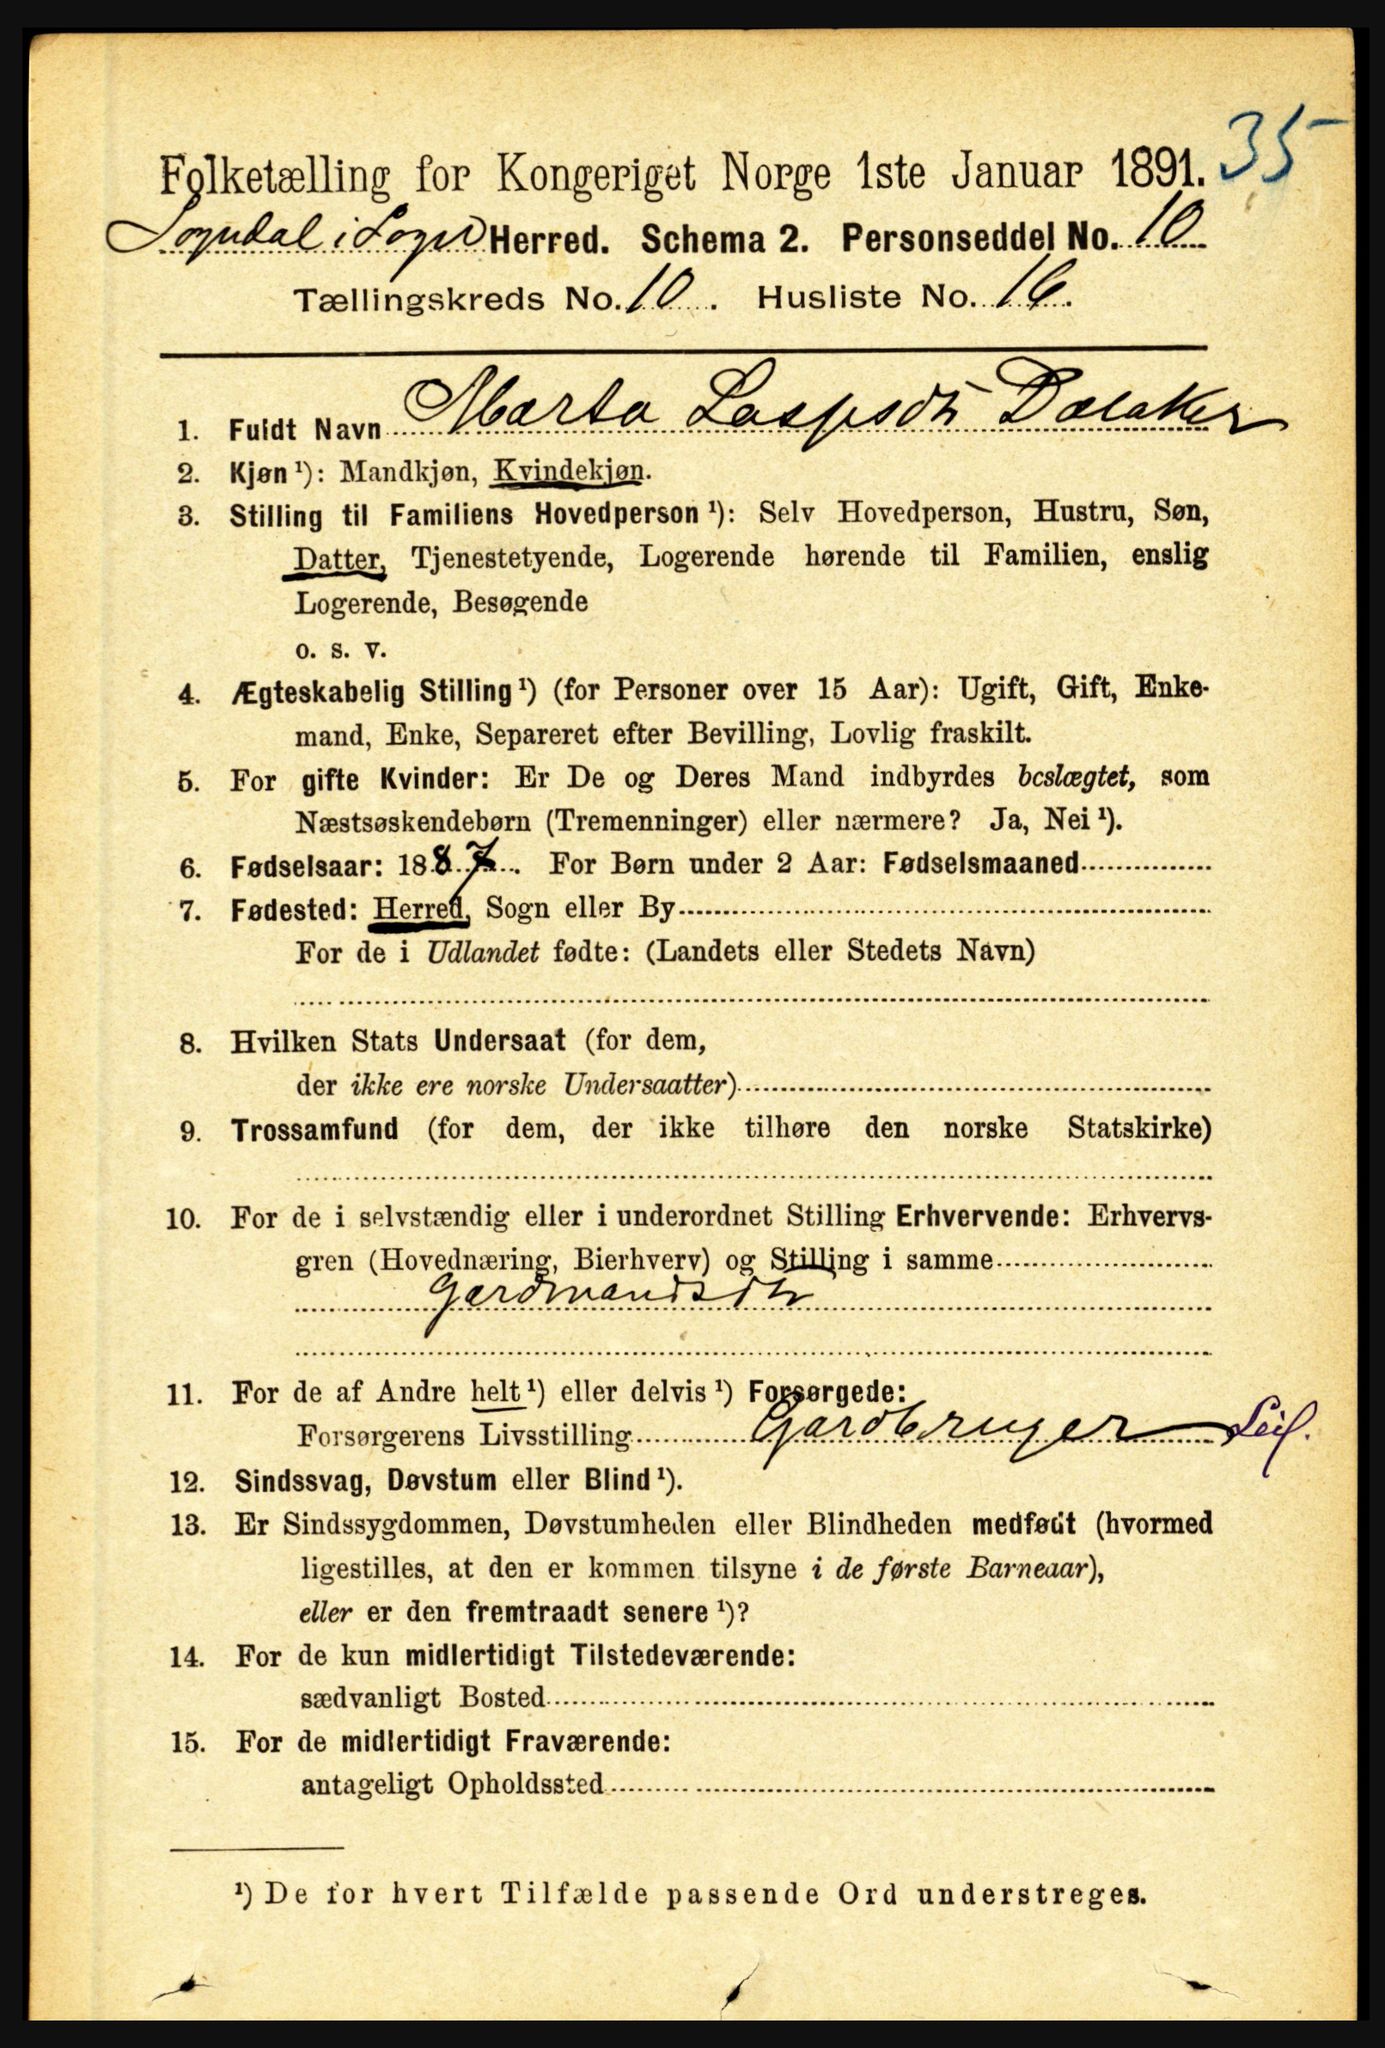 35
Folketælling for Kongeriget Norge 1ste Januar 1891.
Sogndal i Sogn Herred. Schema 2. Personseddel No. 10
Tællingskreds No. 10. Husliste No. 16.
1. Fuldt Navn Marta Dalaker
2. Kjøn ¹): Mandkjøn, Kvindekjøn.
3. Stilling til Familiens Hovedperson ¹): Selv Hovedperson, Hustru, Søn,
Datter, Tjenestetyende, Logerende hørende til Familien, enslig
Logerende, Besøgende
o. s. v.
4. Ægteskabelig Stilling ¹) (for Personer over 15 Aar): Ugift, Gift, Enke-
mand, Enke, Separeret efter Bevilling, Lovlig fraskilt.
5. For gifte Kvinder: Er De og Deres Mand indbyrdes beslægtet, som
Næstsøskendebørn (Tremenninger) eller nærmere? Ja, Nei ¹).
6. Fødselsaar: 1887. For Børn under 2 Aar: Fødselsmaaned
7. Fødested: Herred, Sogn eller By
For de i Udlandet fødte: (Landets eller Stedets Navn)
8. Hvilken Stats Undersaat (for dem,
der ikke ere norske Undersaatter)
9. Trossamfund (for dem, der ikke tilhøre den norske Statskirke)
10. For de i selvstændig eller i underordnet Stilling Erhvervende: Erhvervs-
gren (Hovednæring, Bierhverv) og Stilling i samme
Gardmandsdtr
11. For de af Andre helt ¹) eller delvis ¹) Forsørgede:
Forsørgerens Livsstilling Gardbruger Leil.
12. Sindssvag, Døvstum eller Blind ¹).
13. Er Sindssygdommen, Døvstumheden eller Blindheden medfødt (hvormed
ligestilles, at den er kommen tilsyne i de første Barneaar),
eller er den fremtraadt senere ¹)?
14. For de kun midlertidigt Tilstedeværende:
sædvanligt Bosted
15. For de midlertidigt Fraværende:
antageligt Opholdssted
¹) De for hvert Tilfælde passende Ord understreges.